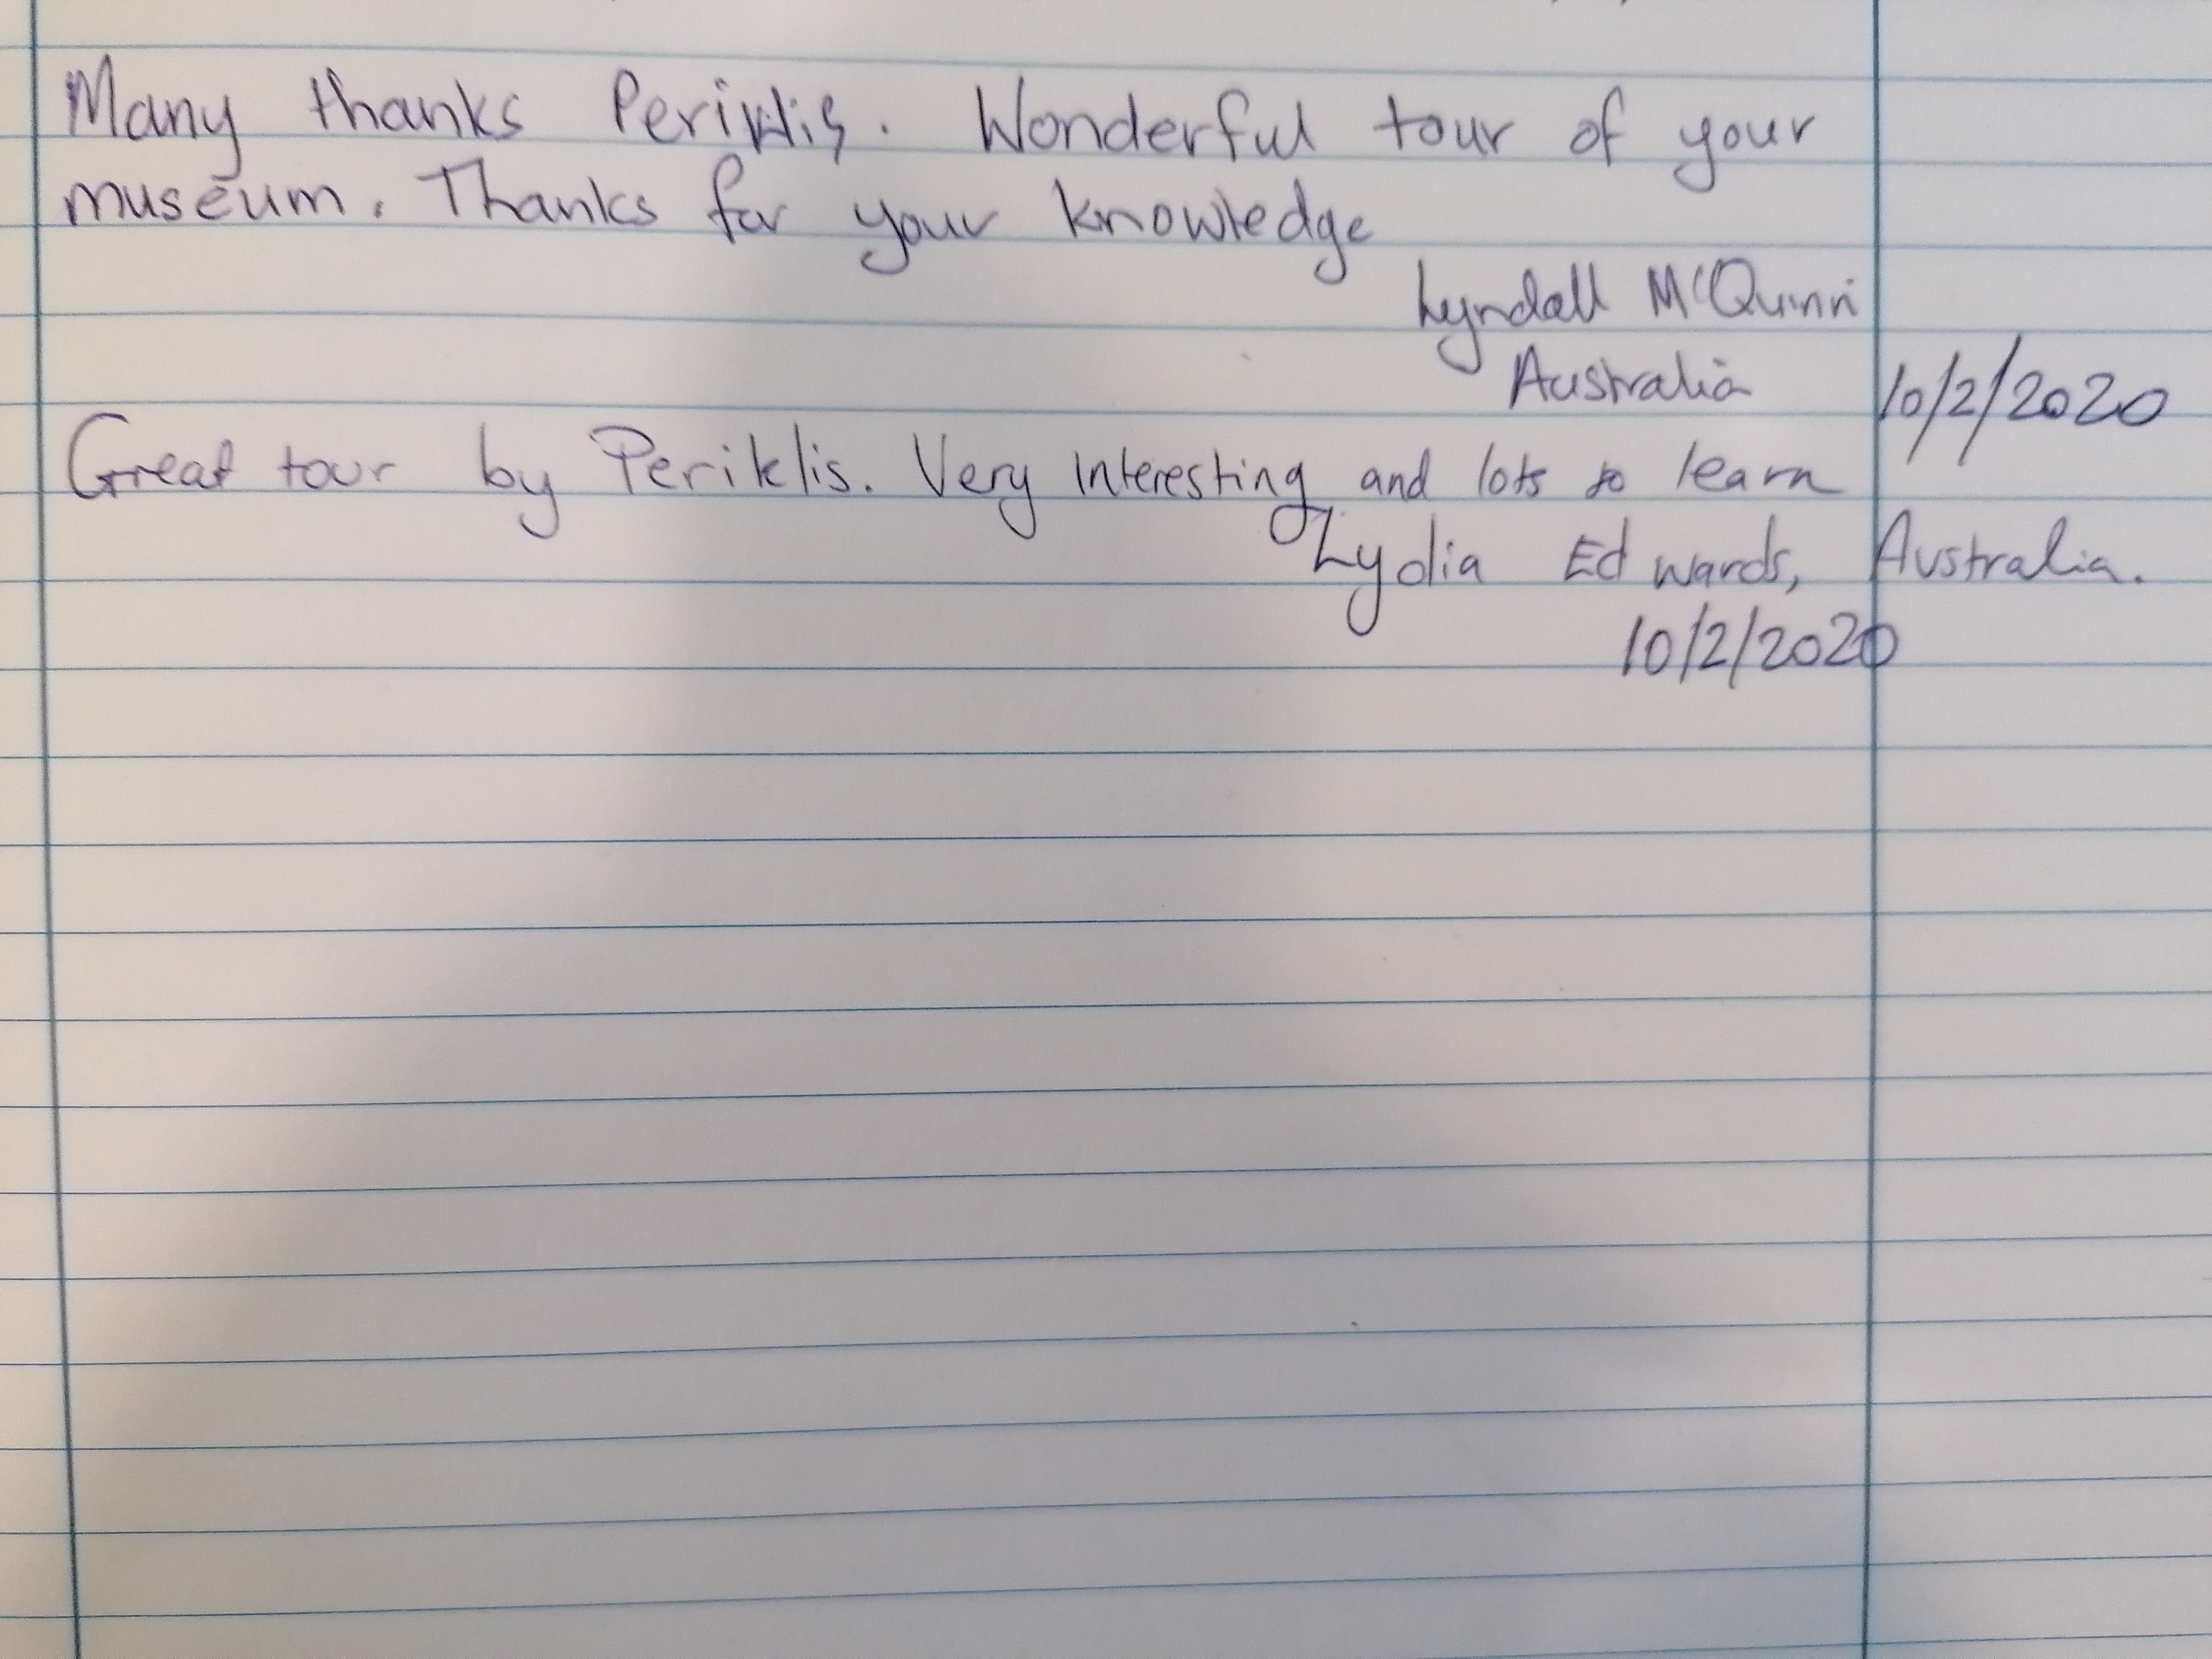 Many thanks Periklis. Wonderful tour of your
museum. Thanks for your knowledge
Lyndall McQuinn
Australia 10/2/2020
Great tour by Periklis. Very interesting and lots to learn
Lydia Edwards, Australia.
10/2/2020